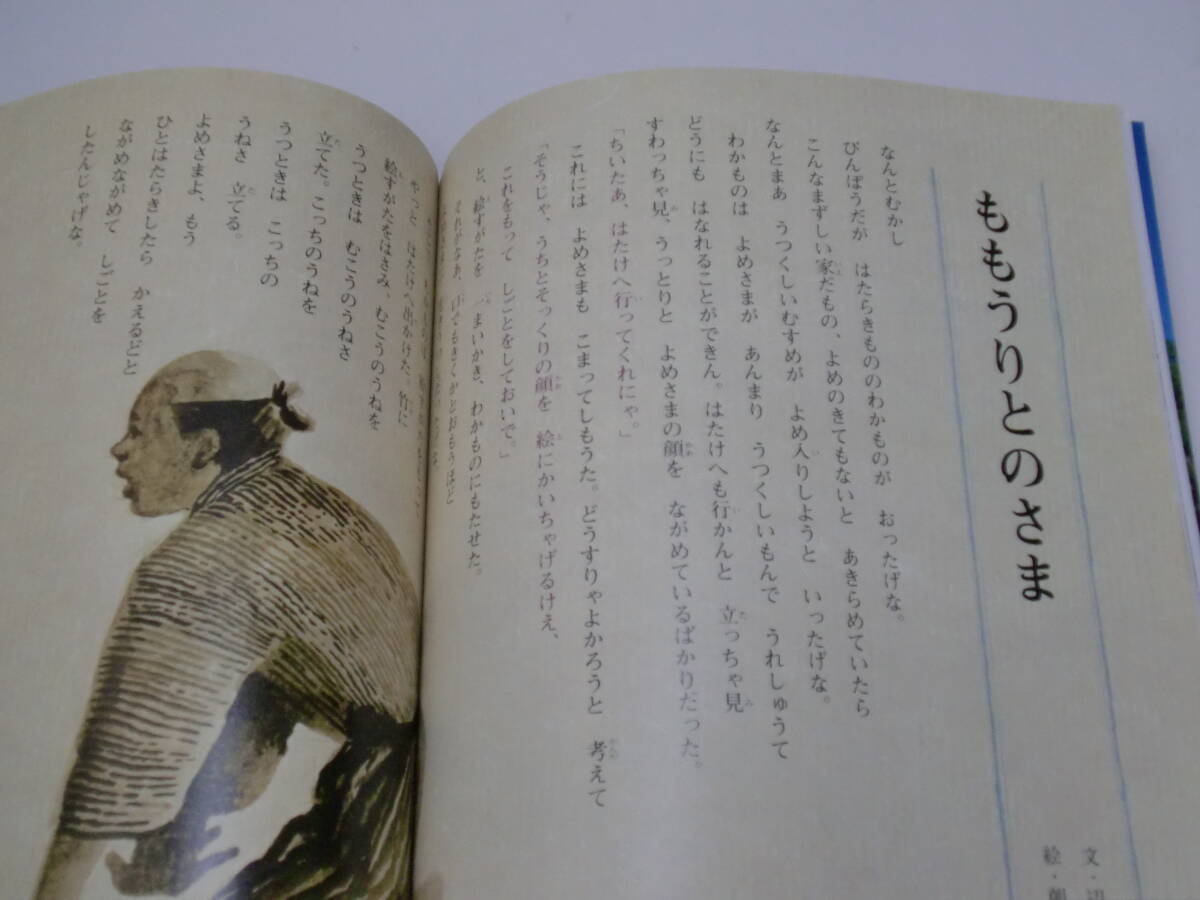 ももうりとのさま
文・
絵・朝
なんとむかし
びんぼうだが はたらきもののわかものが おったげな。
こんなまずしい家だもの、よめのきてもないと あきらめていたら
なんとまあ うつくしいむすめが よめ入りしようと いったげな。
わかものは よめさまが あんまり うつくしいもんで うれしゅうて
どうにも はなれることができん。はたけへも行かんと 立っちゃ見
すわっちゃ見、うっとりと よめさまの顔を ながめているばかりだった。
「ちいたあ、はたけへ行ってくれにゃ。」
これには よめさまも こまってしもうた。どうすりゃよかろうと 考えて
「そうじゃ、うちとそっくりの顔を 絵にかいちゃげるけえ、
これをもって しごとをしておいで。」
と、絵すがたを 一まいかき、わかものにもたせた。
それがなあ、口でもきくかとおもうほど
やっと はたけへ出かけた。竹に
絵すがたをはさみ、むこうのうねを
うつときは むこうのうねさ
立てた。こっちのうねを
うつときは こっちの
うねさ 立てる。
よめさまよ、もう
ひとはたらきしたら かえるどと
ながめながめて しごとを
したんじゃげな。